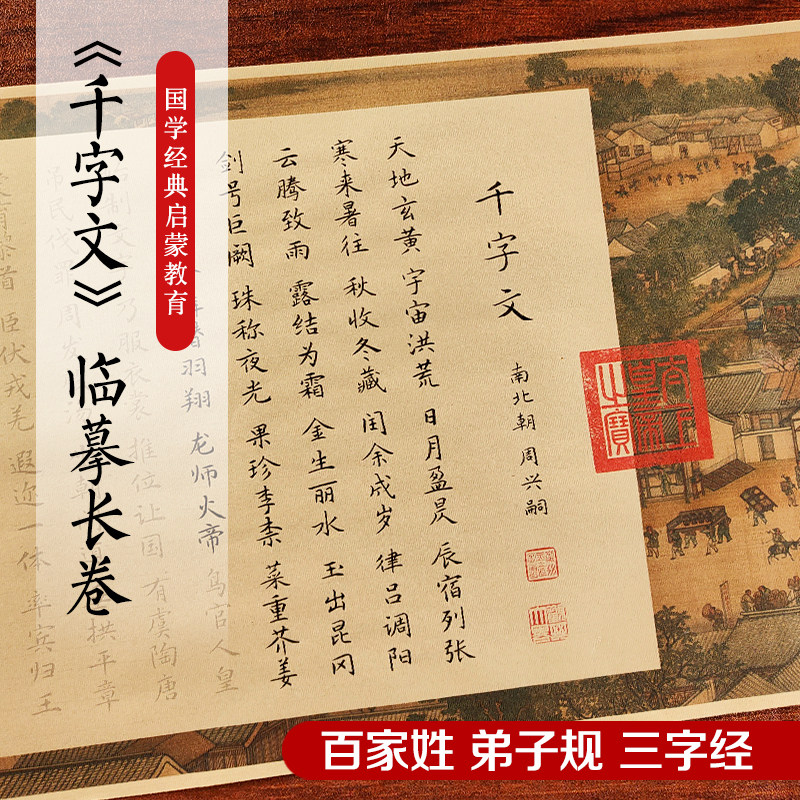 《千字文》临摹长卷
国学经典启蒙教育
千字文
南北朝 周兴嗣
天地玄黄 宇宙洪荒 日月盈昃 辰宿列张
寒来暑往 秋收冬藏 闰余成岁 律吕调阳
云腾致雨 露结为霜 金生丽水 玉出昆冈
剑号巨阙 珠称夜光 果珍李柰 菜重芥姜
羽翔 龙师火帝 鸟官人皇
乃服衣裳 推位让国 有虞陶唐
拱平章
臣伏戎羌 遐迩一体 率宾归王
百家姓 弟子规 三字经